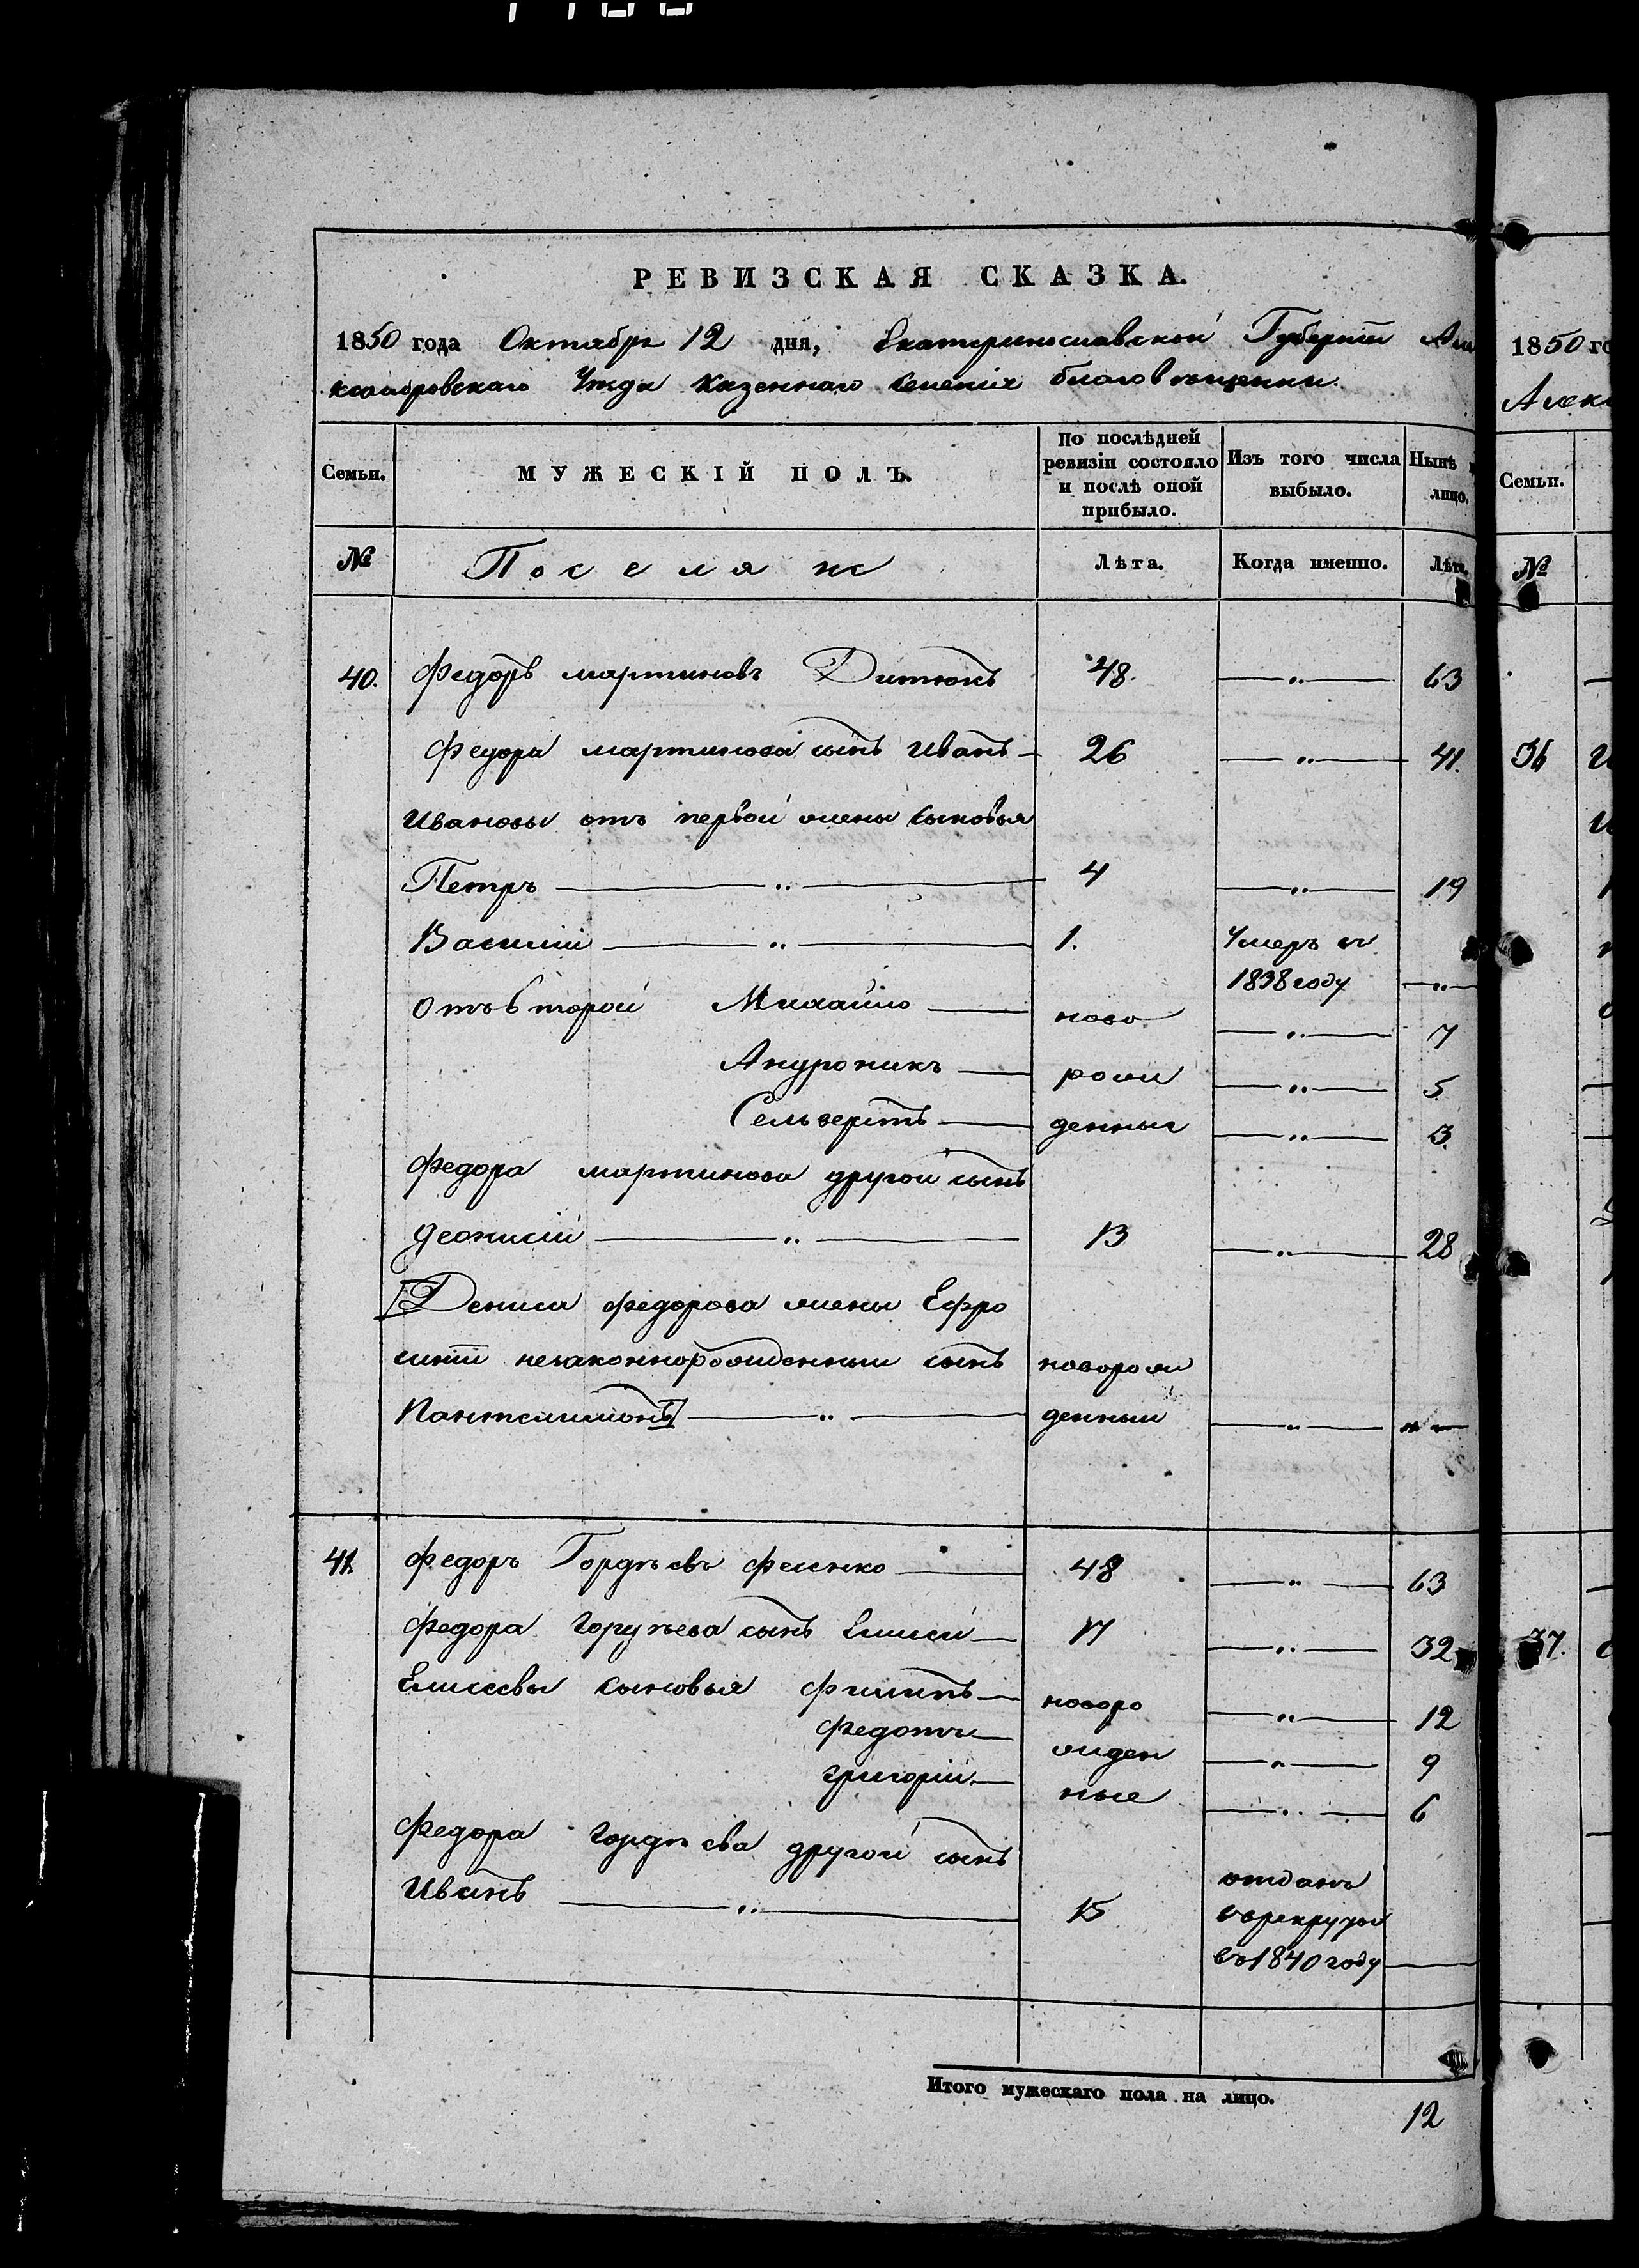 РЕВИЗСКАЯ СКАЗКА.
1850 года Октября 12 дня, Екатеринославской Губернии Але
ксандровскаго Уѣзда казеннаго селенія благовѣщенки.
Семьи. МУЖЕСКІЙ ПОЛЪ. По послѣдней ревизіи состояло и послѣ оной прибыло. Изъ того числа выбыло. Нынѣ лицо.
№ Поселяне Лѣта. Когда именно. Лѣта.
40. Федоръ мартиновъ Дитюкъ 48. —„— 63
Федора мартинова сынъ Иванъ — 26 —„— 41.
Ивановы отъ первой жены сыновья
Петръ —„— 4 —„— 19
Василій —„— 1. Умеръ въ
1838 году —„—
Отъ второй Михайло — ново —„— 7
Андроникъ — рож —„— 5
Сельверстъ — денные —„— 3.
Федора мартинова другой сынъ
Деонисій —„— 13 —„— 28
[Дениса федорова жены Ефро
синіи незаконнорожденный сынъ новорож
Пантелимонъ] —„— денный —„— „ —
41. Федоръ Гордѣевъ Фесенко — 48 —„— 63
Федора Гордѣева сынъ Елисей — 17 —„— 32
Елисеевы сыновья Филипъ — новоро —„— 12
Федотъ — жден —„— 9
Григорій — ные —„— 6
Федора Гордѣева другой сынъ
Иванъ —„— 15 отданъ
въ рекруты
въ 1840 году —
Итого мужескаго пола на лицо.
12
1850 го
Алекс
Семьи.
№
36
37.